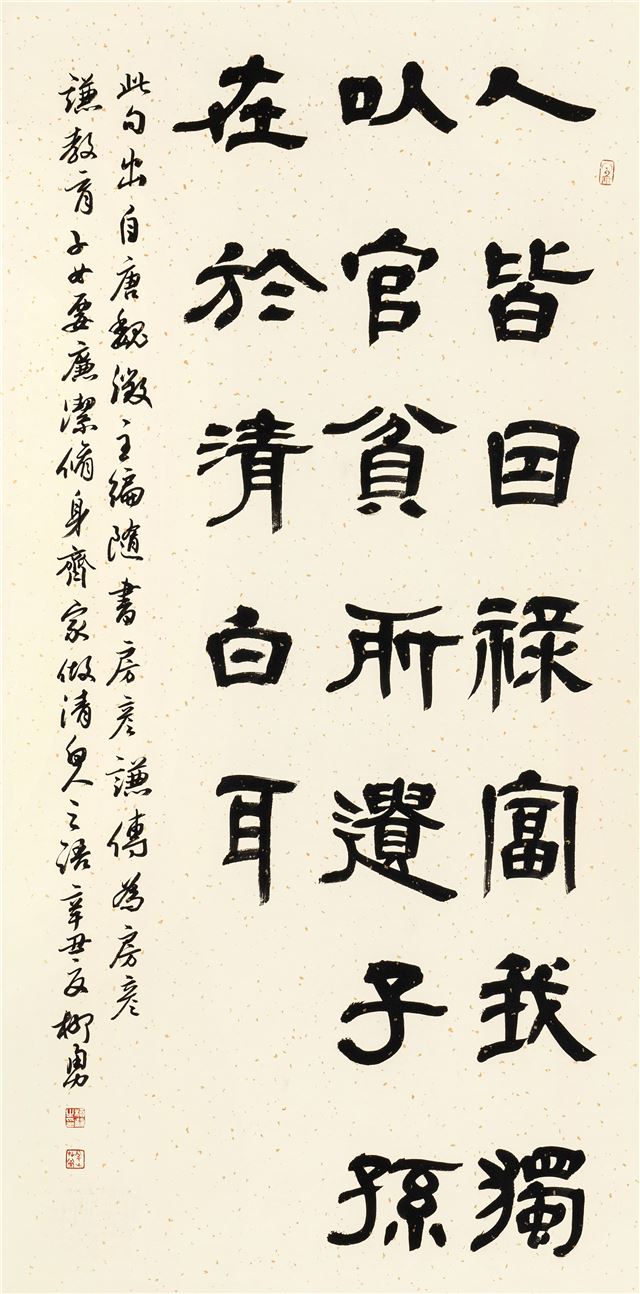 人皆因祿富我獨
以官貧所遺子孫
在於清白耳
此句出自唐魏徵主編隨書房彥謙傳為房彥
謙教育子女要廉潔脩身齊家做清白人之語辛丑夏柳勇